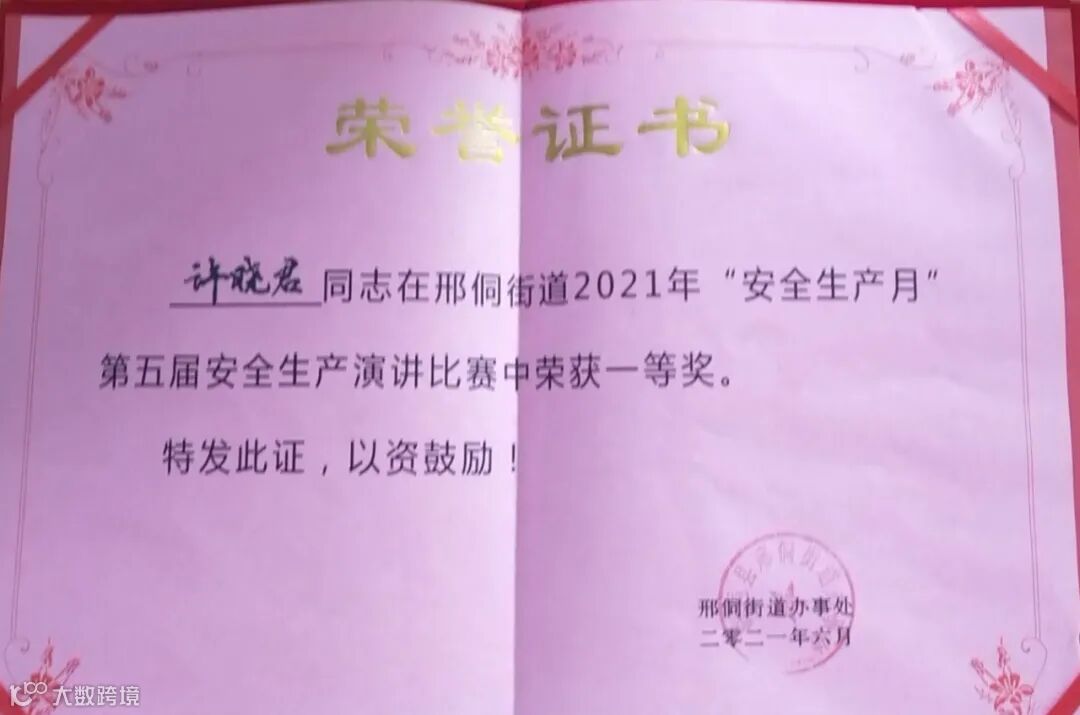 荣誉证书
许晓君同志在邢侗街道2021年“安全生产月”
第五届安全生产演讲比赛中荣获一等奖。
特发此证，以资鼓励！
县邢侗街道
邢侗街道办事处
二零二一年六月
大数跨境